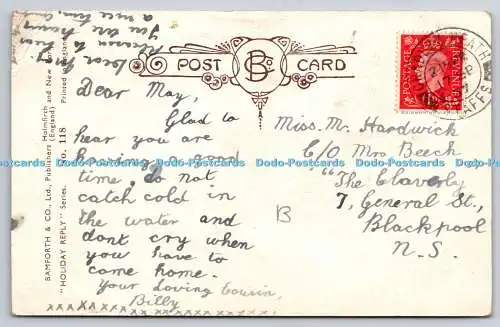 POST CARD
BCo
BAMFORTH & CO., Ltd., Publishers Holmfirth and New York
(England)
"HOLIDAY REPLY" Series. No. 118
Printed in England
a nice time
you are having
to hear
Dear May,
Glad to
hear you are
having a good
time, do not
catch cold in
the water and
dont cry when
you have to
come home.
Your Loving Cousin,
Billy
xxxxxxxxxxxxxxx
Miss. M. Hardwick
C/O Mrs Beech
"The Claverly
7, General St.,
Blackpool
N.S.
B
POSTAGE REVENUE
Dodo-Postcards Dodo-Postcards Dodo-Postcards Dodo-Postcards Dodo-Postcards